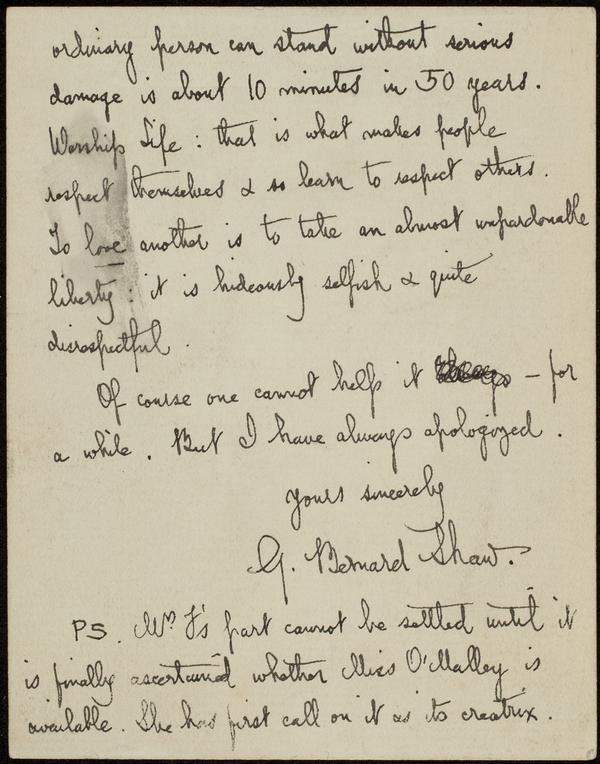 ordinary person can stand without serious
damage is about 10 minutes in 50 years.
Worship Life: that is what makes people
respect themselves & so learn to respect others.
To love another is to take an almost unpardonable
liberty: it is hideously selfish & quite
disrespectful.
Of course one cannot help it – for
a while. But I have always apologized.
yours sincerely
G. Bernard Shaw.
PS. Mrs J's part cannot be settled until it
is finally ascertained whether Miss O'Malley is
available. She has first call on it as its creatrix.